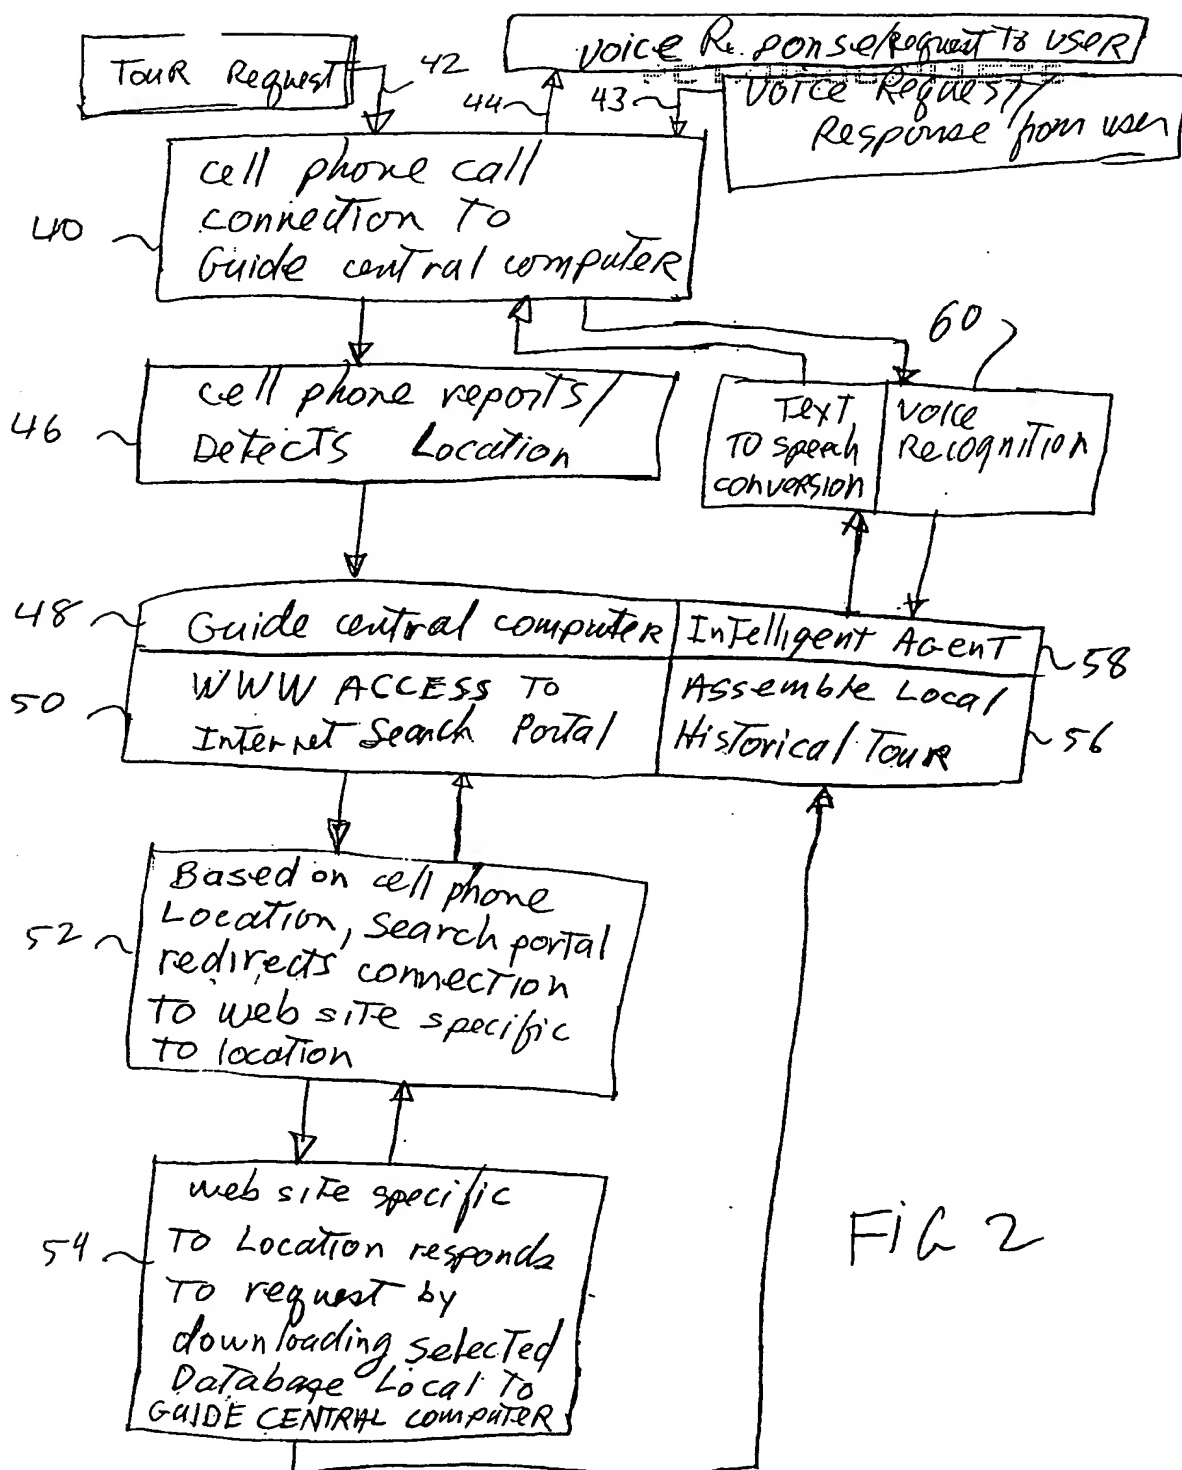 Tour Request
42
Voice Re ponse/Request To user
44
43
Voice Request/
Response from user
40
cell phone call
connection To
Guide central computer
60
46
cell phone reports/
Detects Location
Text
To speech
conversion
Voice
Recognition
48
Guide central computer
Intelligent Agent
58
50
WWW ACCESS To
Internet Search Portal
Assemble Local
Historical Tour
56
52
Based on cell phone
Location, Search portal
redirects connection
To web site specific
To location
54
web site specific
To Location responds
To request by
downloading selected
Database Local To
GUIDE CENTRAL computer
FiG 2